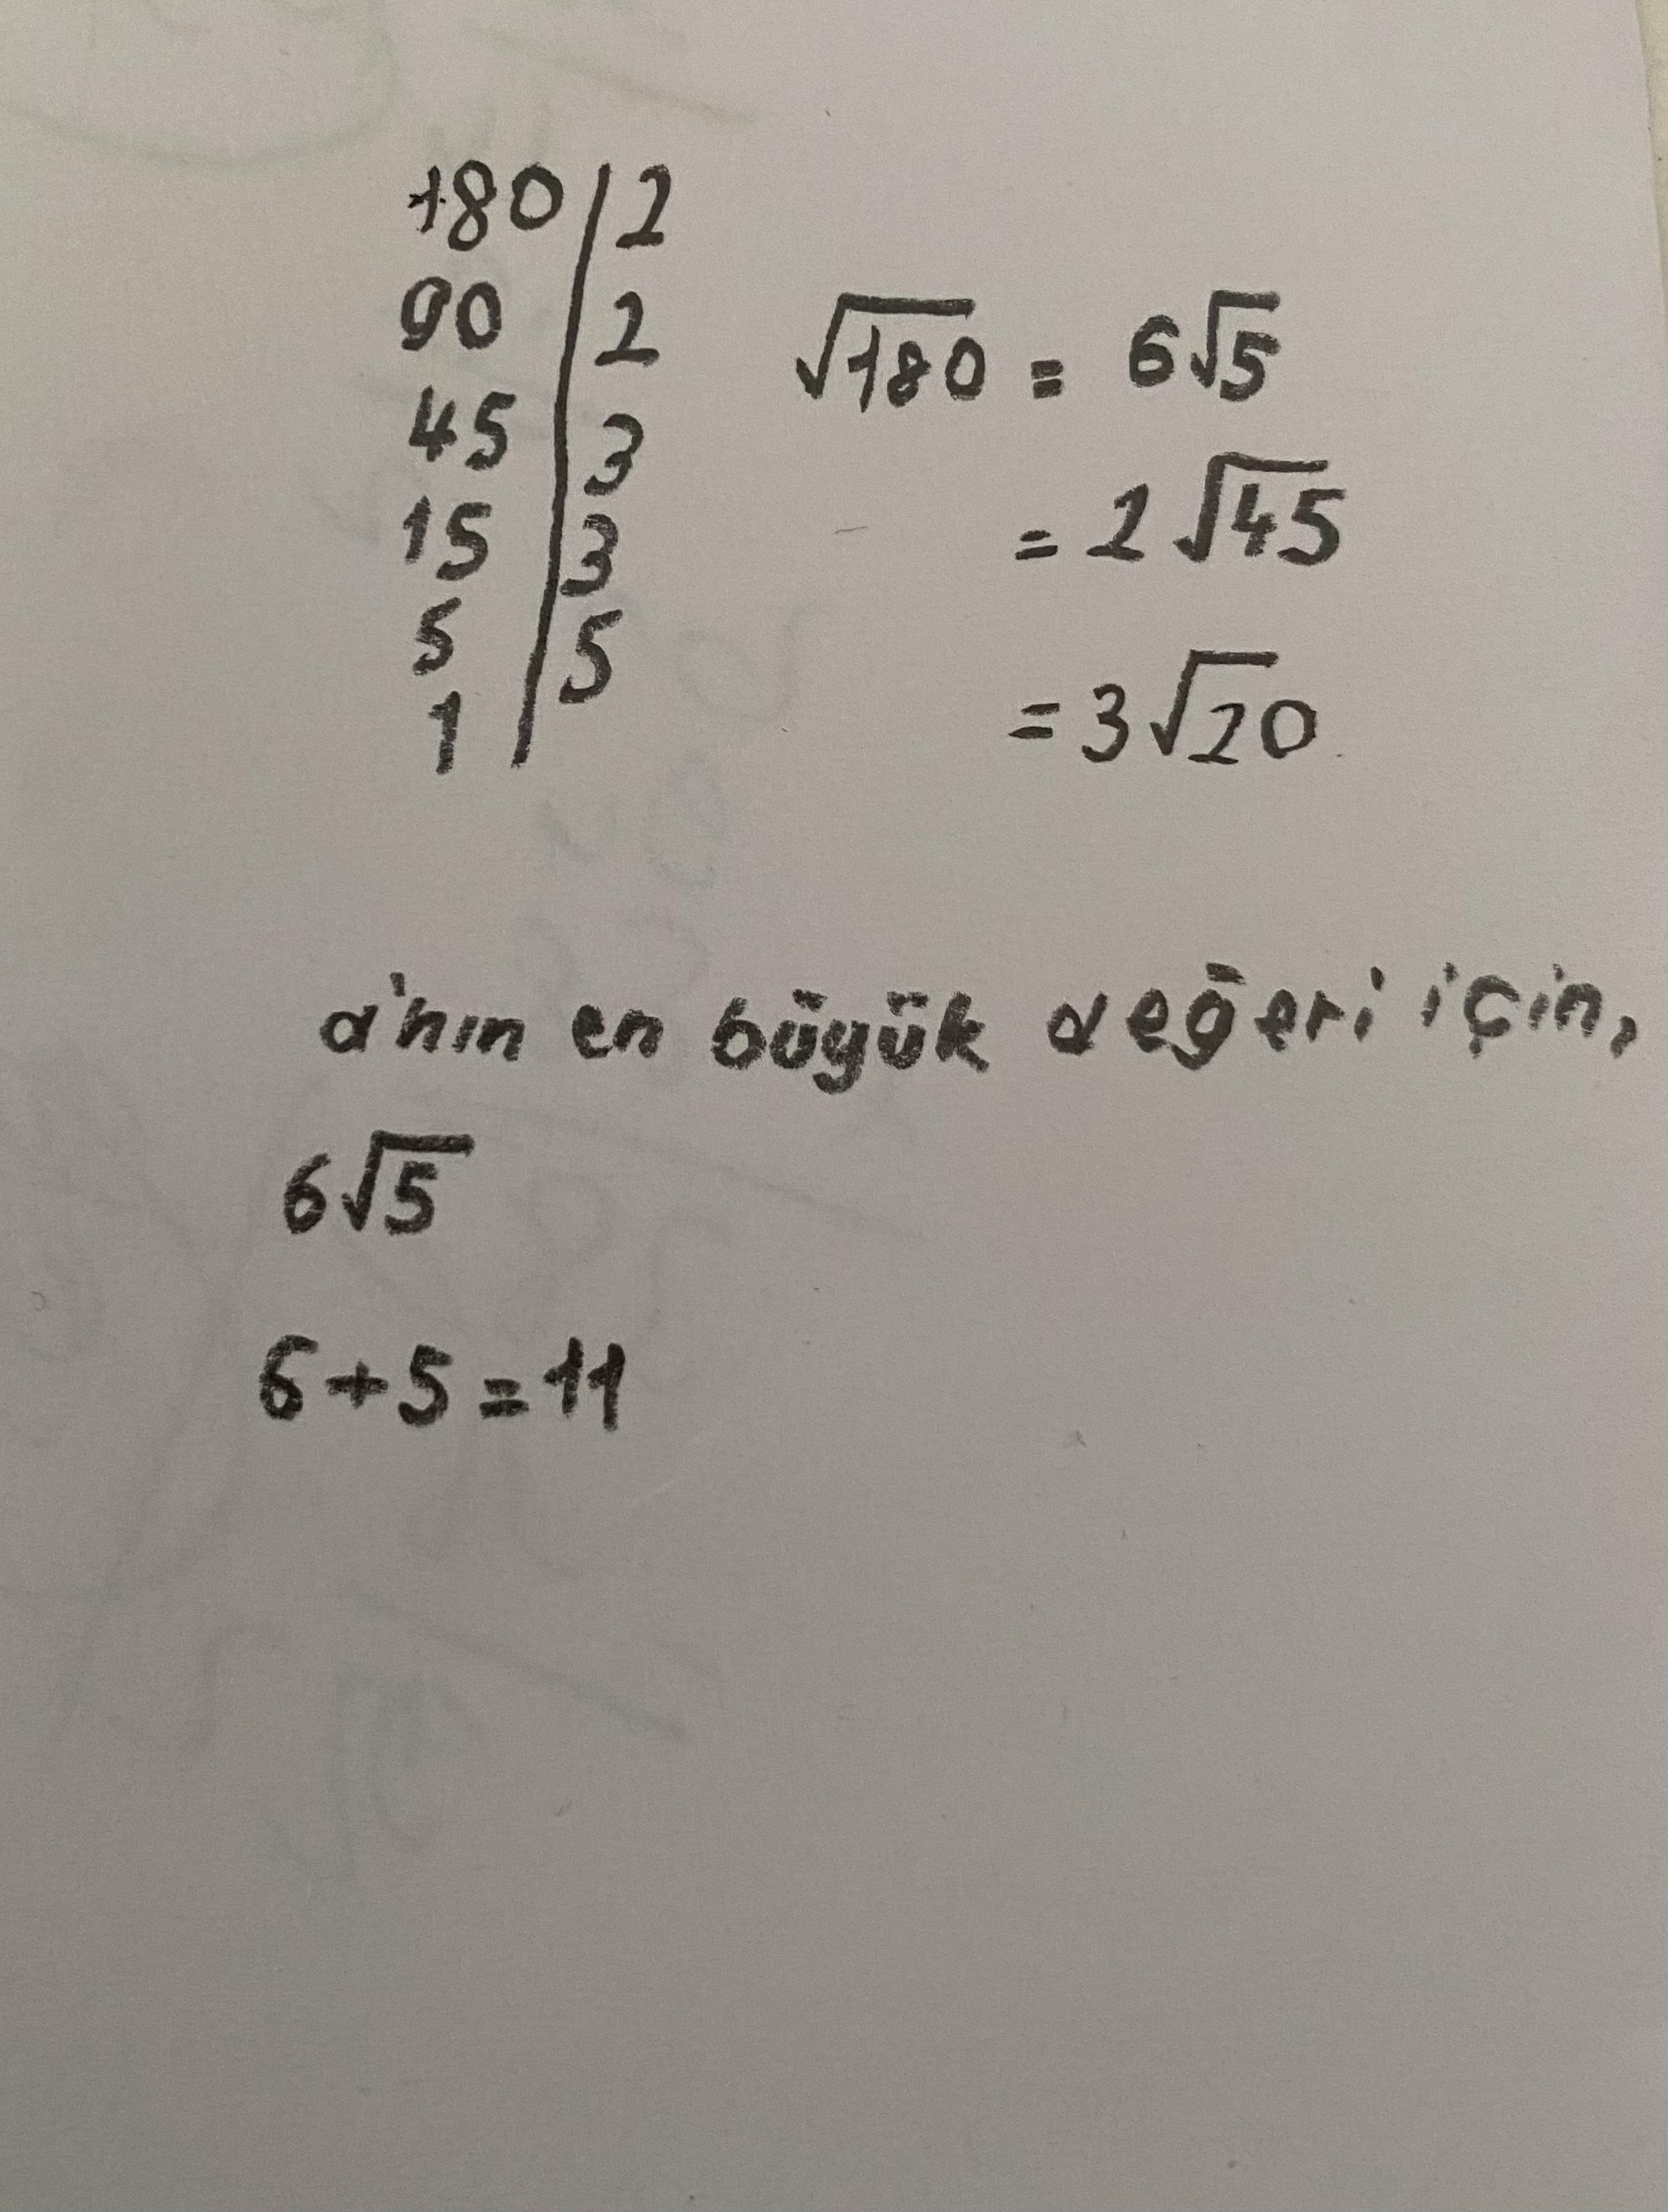 180 | 2
90 | 2
45 | 3
15 | 3
5 | 5
1 |
√180 = 6√5
= 2√45
= 3√20
a'nın en büyük değeri için,
6√5
6+5=11